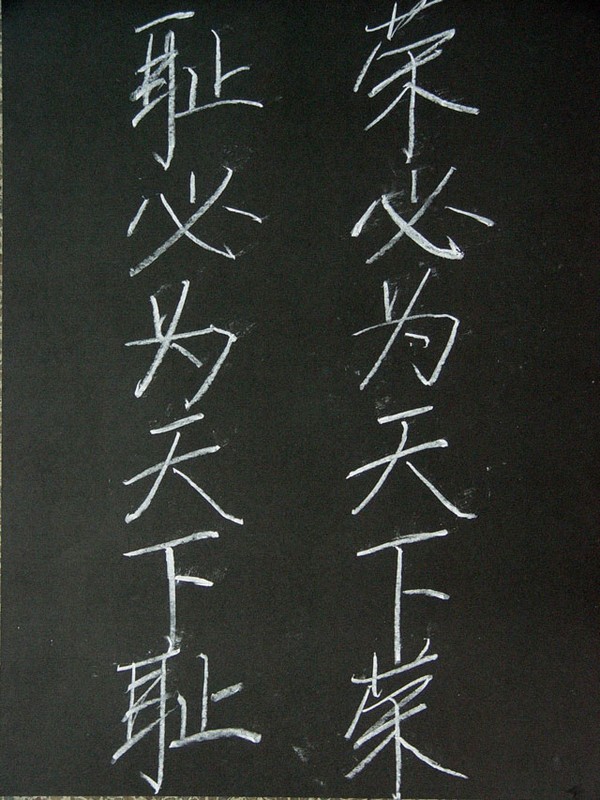 荣必为天下荣
耻必为天下耻